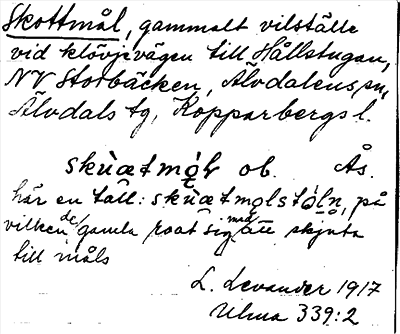 Skottmål, gammalt vilställe
vid klövjevägen till Hållstugan,
NV Storbäcken, Älvdalens sn,
Älvdals tg, Kopparbergs l.
skùætmǫ́l ob. Ås.
här en tall: skùætmǫlstǫ́ln, på
vilken de gamla roat sig med att skjuta
till måls
L. Levander 1917
Ulma 339:2